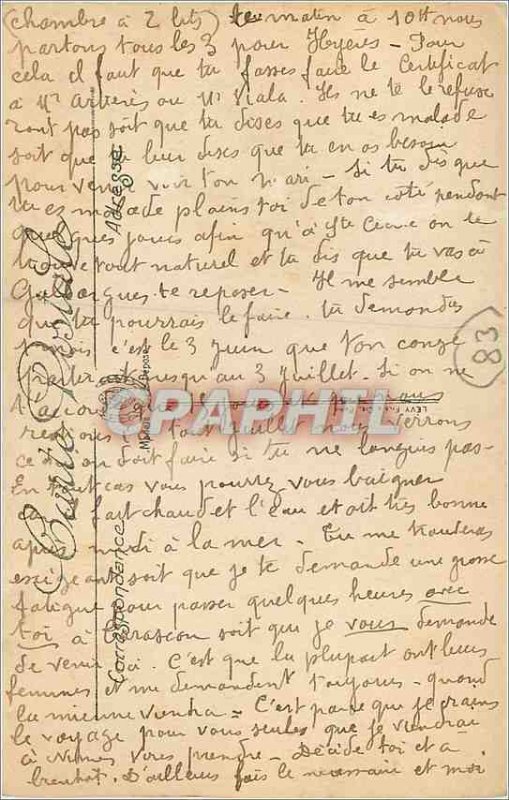 (chambre à 2 lits) le matin à 10H nous
partons tous les 3 pour Hyères - Pour
cela il faut que tu fasses faire le Certificat
à Mr ou Mr Viala. Ils ne te le refuse
ront pas soit que tu dises que tu es malade
soit que tu leur dises que tu en as besoin
pour venir voir ton mari - Si tu dis que
tu es malade plains toi de ton côté pendant
quelques jours afin qu'à Ste on le
trouve tout naturel et tu dis que tu vas à
te reposer - Il me semble
que tu pourrais le faire. tu demandes
mois c'est le 3 juin que ton congé
jusqu'au 3 juillet. Si on ne
t'accorde
tout juillet nous verrons
ce qu'on doit faire si tu ne languis pas -
En tout cas vous pourrez vous baigner
fait chaud et l'eau était très bonne
après midi à la mer - Tu me trouveras
exigeant soit que je te demande une grosse
fatigue pour passer quelques heures avec
toi à Tarascon soit que je vous demande
de venir ici. C'est que la plupart ont leurs
femmes et me demandent toujours - quand
la mienne viendra = C'est parce que je crains
le voyage pour vous seules que je viendrai
à Nimes vous prendre - Décide toi et à
bientôt. D'ailleurs fais le nécessaire et moi
Carte Postale
Correspondance
Adresse
83
CPARPHIL